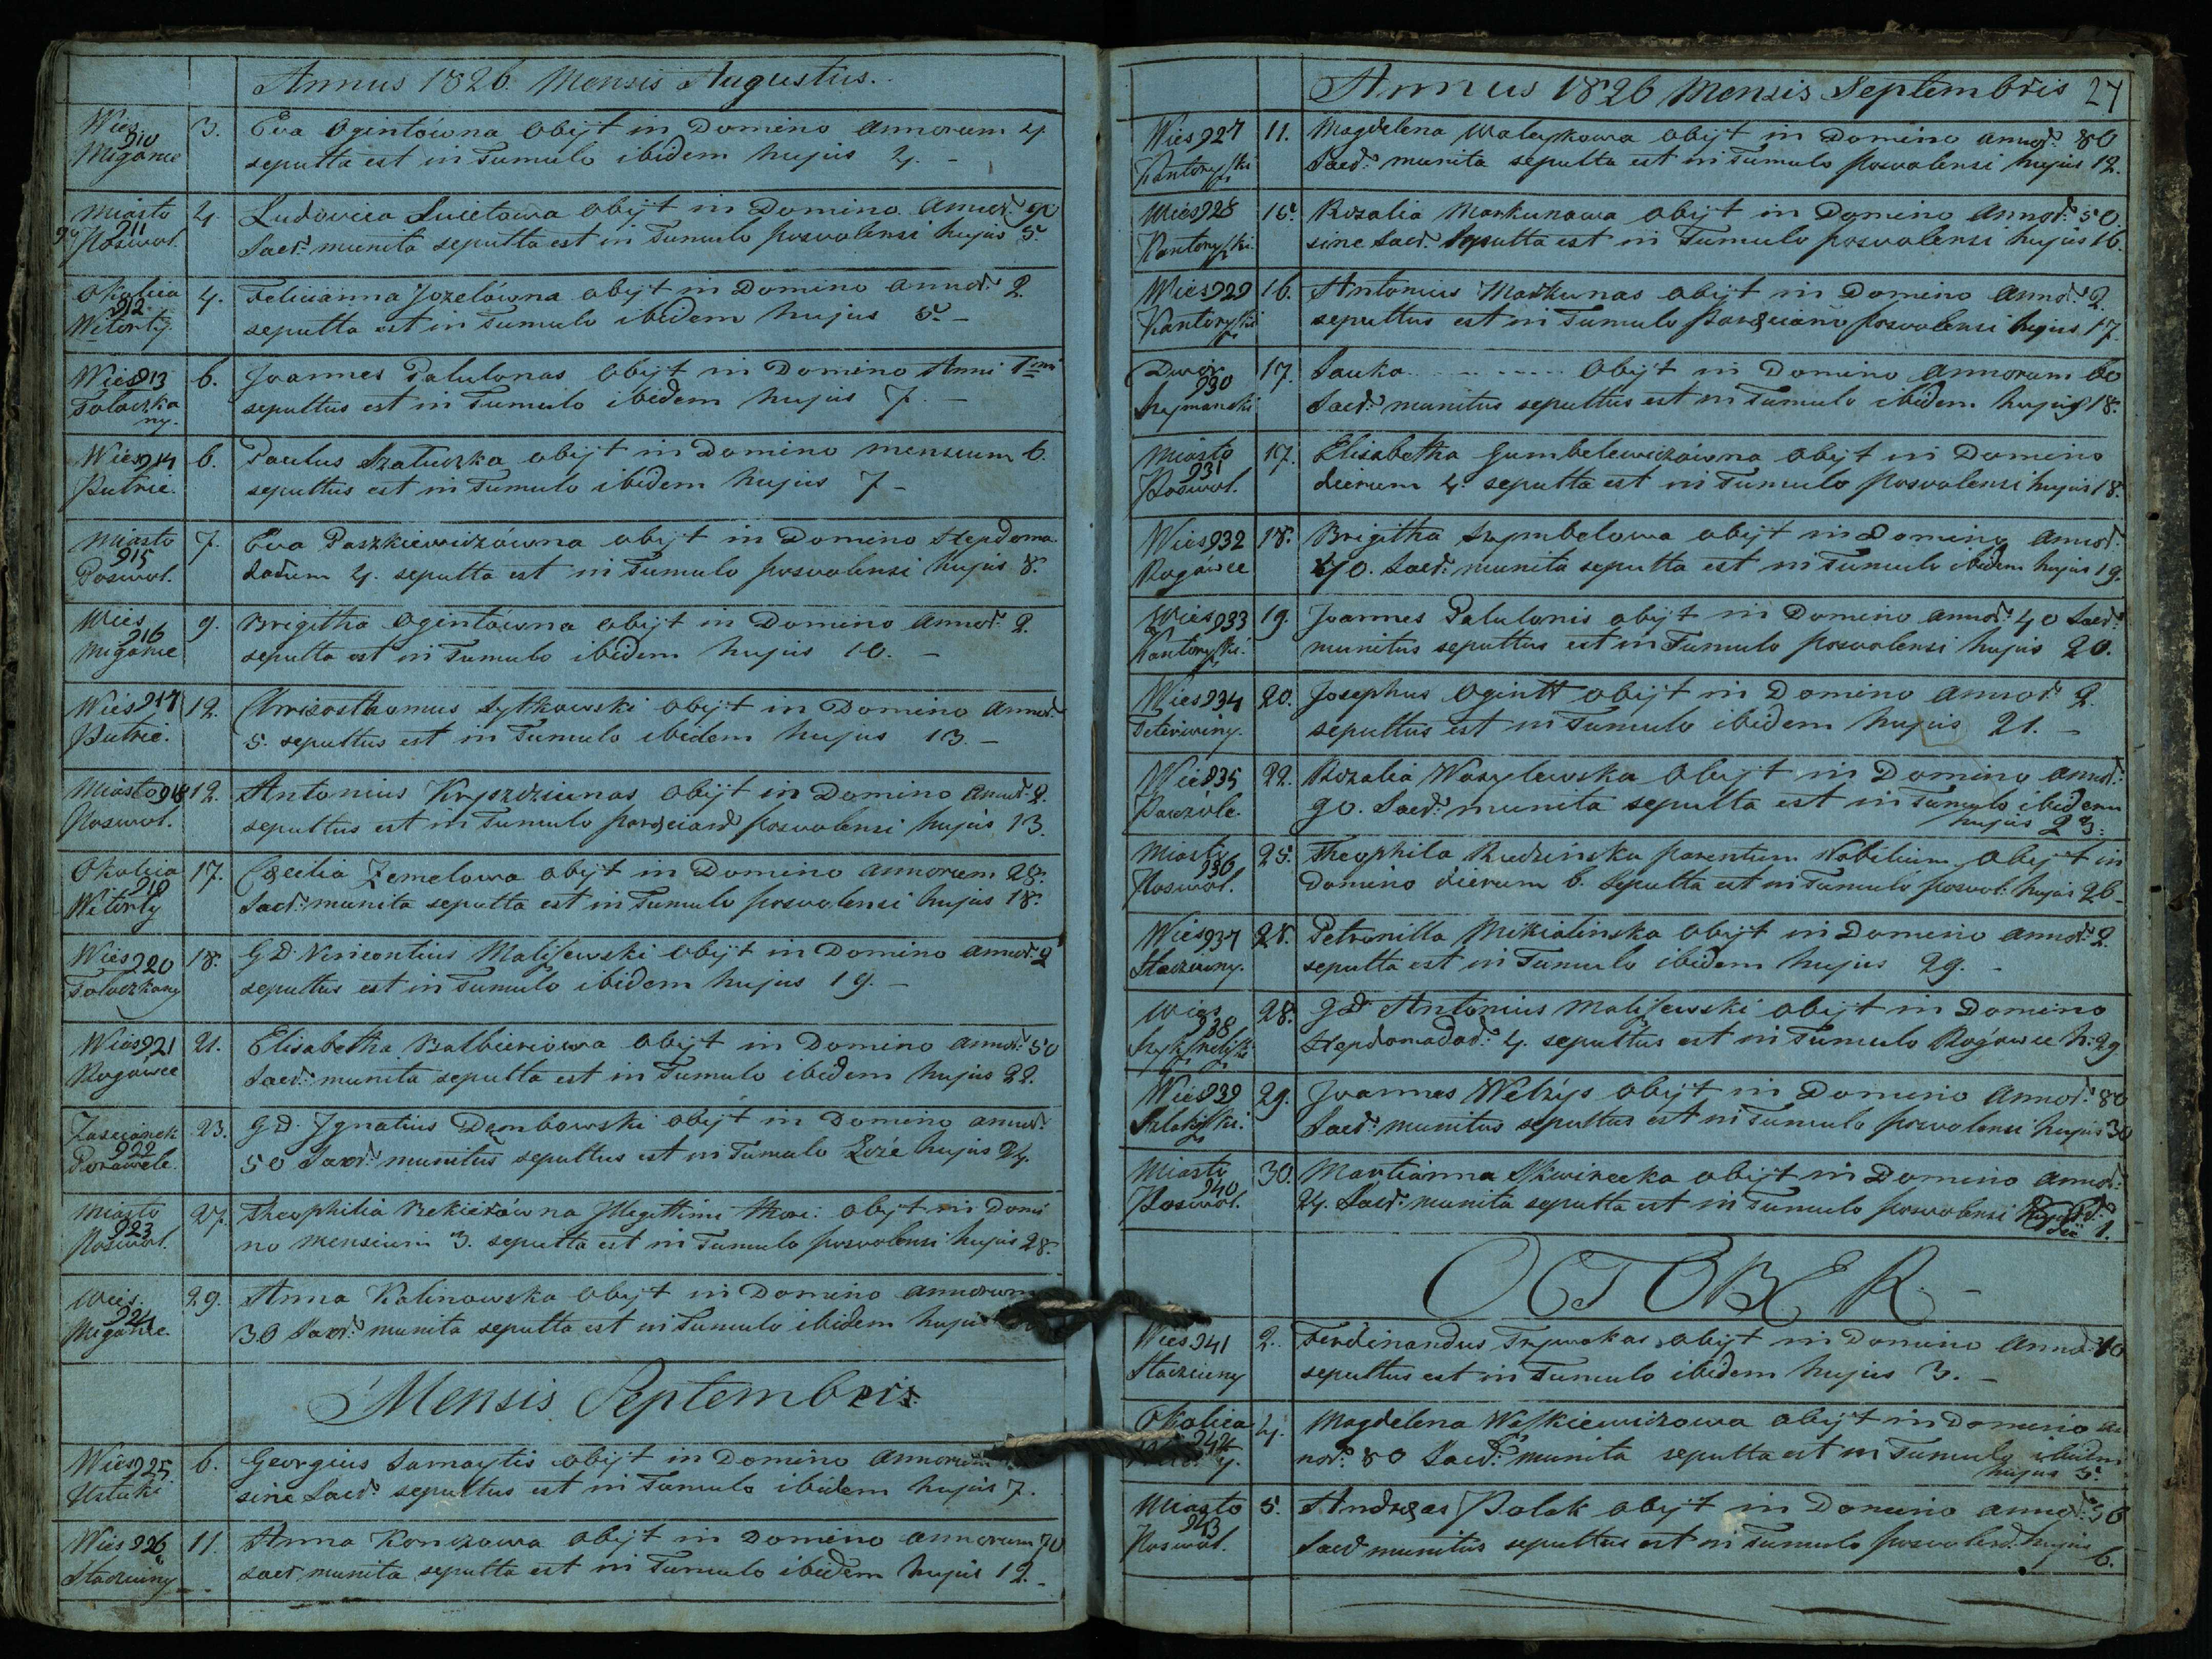 Annus 1826. Mensis Augustus.
Wies 910 Migance 3. Eva Ogintówna obijt in Domino annorum 4
sepulta est in Tumulo ibidem hujus 4. –
Miasto 911 Poswol. 4. Ludovica Lucitowa obijt in Domino annor. 90
Sacr. munita sepulta est in Tumulo posvolensi hujus 5.
Okolica 912 Witorty 4. Felicianna Jozelówna obijt in Domino annor. 2.
sepulta est in Tumulo ibidem hujus 5. –
Wies 913 Tołoczkany. 6. Joannes Palulonas obijt in Domino Anni 1mi
sepultus est in Tumulo ibidem hujus 7. –
Wies 914 Putrie. 6. Paulus Szałuczka obijt in Domino mensium 6.
sepultus est in Tumulo ibidem hujus 7 –
Miasto 915 Poswol. 7. Eva Paszkiewiczówna obijt in Domino Hepdoma
dadum 4. sepulta est in Tumulo posvolensi hujus 8.
Wies 916 Migance 9. Brigitha Ogintówna obijt in Domino annor. 2.
sepulta est in Tumulo ibidem hujus 10. –
Wies 917 Putrie. 12. Chrizosthomus Sytkowski obijt in Domino annor.
5. sepultus est in Tumulo ibidem hujus 13. –
Miasto 918 Poswol. 12. Antonius Kryszciunas obijt in Domino annor. 2.
sepultus est in Tumulo posvolensi hujus 13.
Okolica 919 Witorty 17. Cæcilia Zemelowa obijt in Domino annorum 28.
Sacr. munita sepulta est in Tumulo posvolensi hujus 18.
Wies 920 Tołoczkany 18. G D. Vincentius Maliszewski obijt in Domino annor. 2
sepultus est in Tumulo ibidem hujus 19. –
Wies 921 Rogowce 21. Elisabetha Balbierowa obijt in Domino annor. 50
Sacr. munita sepulta est in Tumulo ibidem hujus 22.
Zascianek 922 23. G D. Ignatius Dembowski obijt in Domino annor.
50 Sacr. munitus sepultus est in Tumulo hujus 24.
Miasto 923 Poswol. 27. Theophilia Bekierówna Illegittimi thori obijt in Domi
no mensium 3. sepulta est in Tumulo posvolensi hujus 28.
Wies. 924 Migance. 29. Anna Kalinowska obijt in Domino annorum
30 Sacr. munita sepulta est in Tumulo ibidem hujus
Mensis Septembris
Wies 925 Ustuki 6. Georgius Samaytis obijt in Domino annorum
sine Sacr. sepultus est in Tumulo ibidem hujus 7.
Wies 926 Staczuny 11. Anna Konczowa obijt in Domino annorum 70
sacr munita sepulta est in Tumulo ibidem hujus 12. –
Annus 1826 Mensis Septembris 27
Wies 927 Kantoryszki 11. Magdelena Waleykowa obijt in Domino annor. 80
Sacr. munita sepulta est in Tumulo posvolensi hujus 12.
Wies 928 Kantoryszki. 15. Rozalia Markunowa obijt in Domino annor. 50.
sine Sacr. Sepulta est in Tumulo posvolensi hujus 16.
Wies 929 Kantoryszki 16. Antonius Markunas obijt in Domino annor. 2.
sepultus est in Tumulo posvolensi hujus 17.
Dwór 930 Szymanski 17. Sauka . . . . . . . obijt in Domino annorum 60
Sacr. munitus sepultus est in Tumulo ibidem hujus 18.
Miasto 931 Poswol. 17. Elisabetha Gumbelewiczówna obijt in Domino
dierum 4. sepulta est in Tumulo posvolensi hujus 18.
Wies 932 Rogowce 18. Brigitha Szymbelowa obijt in Domino annor.
40. Sacr. munita sepulta est in Tumulo ibidem hujus 19.
Wies 933 Kantoryszki. 19. Joannes Palulonis obijt in Domino annor. 40 Sacr.
munitus sepultus est in Tumulo posvolensi hujus 20.
Wies 934 Teterwiny. 20. JosephusOgintt obijt in Domino annor. 2.
sepultus est in Tumulo ibidem hujus 21. –
Wies 935 Pawzole. 22. Rozalia Wasylewska obijt in Domino annor.
90. Sacr. munita sepulta est in Tumulo ibidem
hujus 23.
Miasto 936 Poswol. 25. Theophila Rudzińska parentum Nobilium obijt in
Domino dierum 6. Sepulta est in Tumulo posvol. hujus 26 –
Wies 937 Staczuny. 28. Petronilla Mikialinska obijt in Domino annor. 2.
sepulta est in Tumulo ibidem hujus 29. –
Wies 938 28. Gd Antonius Maliszewski obijt in Domino
Hepdomadad. 4. sepultus est in Tumulo Rogowce h: 29
Wies 939 29. Joannes Welżys obijt in Domino annor. 80
Sacr. munitus sepultus est in Tumulo posvolensi hujus 30
Miasto 940 Poswol. 30. Martianna Skwirecka obijt in Domino annor.
24. Sacr. munita sepulta est in Tumulo posvolensi
1.
OCTOBER. –
Wies 941 Staczuny 2. Ferdinandus Trywokas obijt in Domino annor. 10
sepultus est in Tumulo ibidem hujus 3. –
Okolica 942 4. Magdelena Waszkiewiczowa obijt in Domino an
nor. 80 Sacr. munita sepulta est in Tumulo ibidem
hujus 5.
Miasto 943 Poswol. 5. Andreas Polak obijt in Domino annor. 56
Sacr munitus sepultus est in Tumulo posvolens. hujus
6.